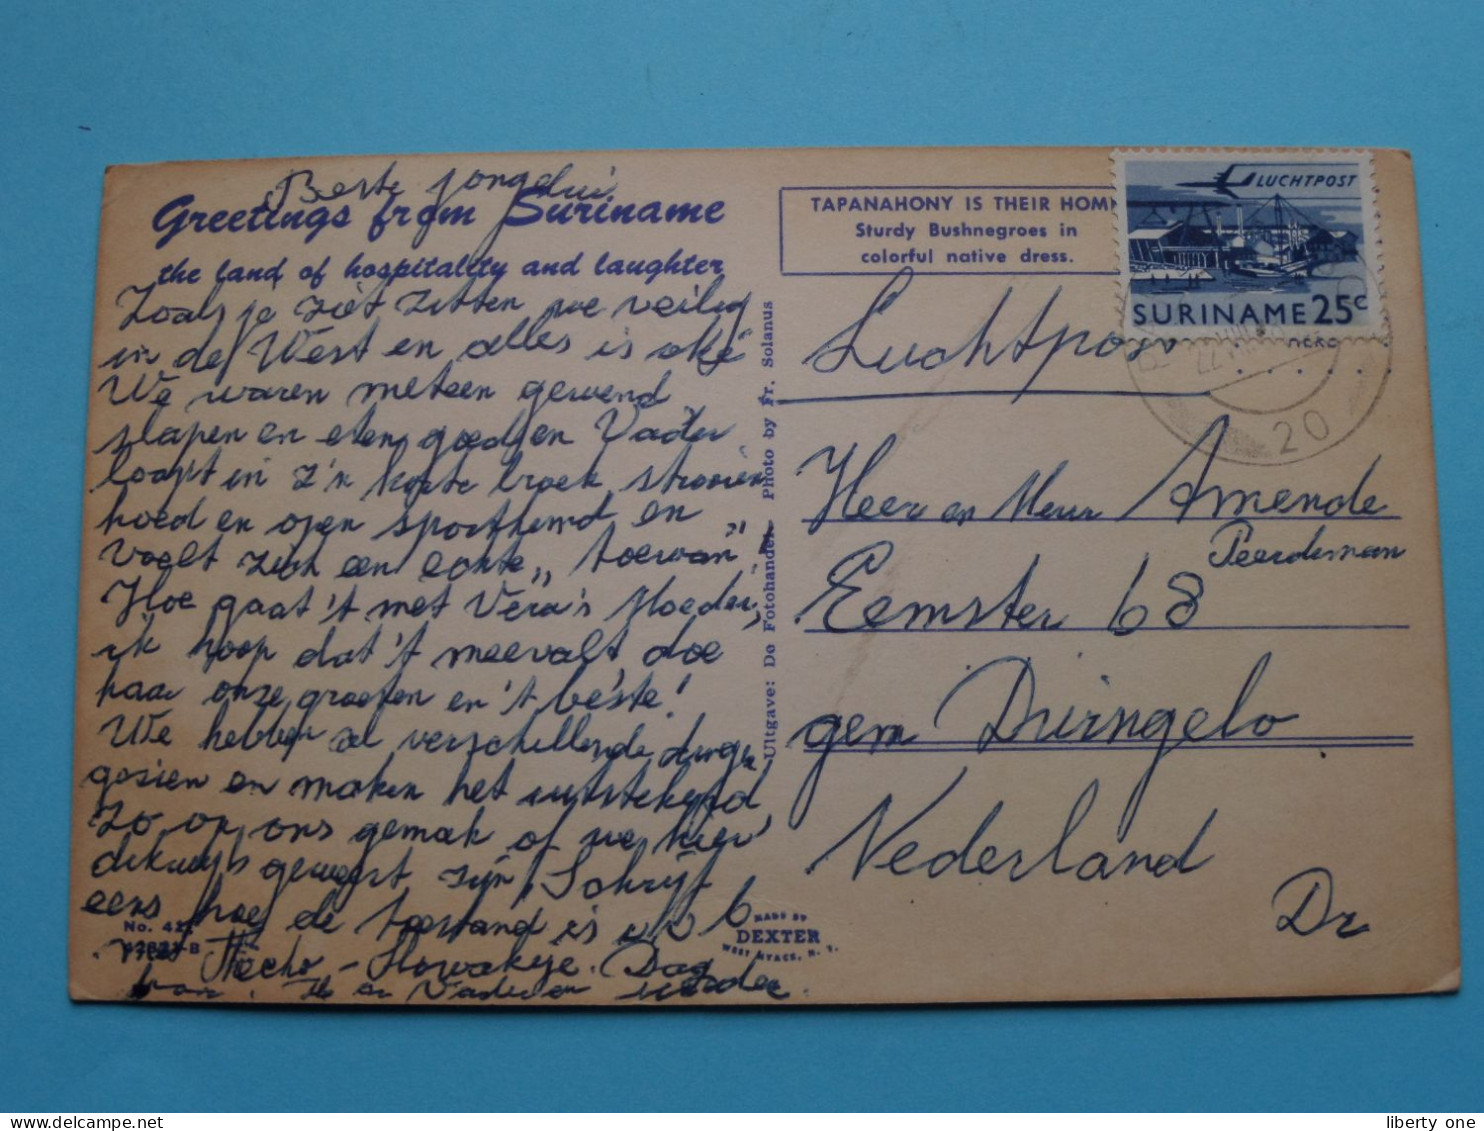 Beste jongelui
Greetings from Suriname
the land of hospitality and laughter
Zoals je ziet zitten we veilig
in de West en alles is oké
We waren meteen gewend
slapen en eten goed en Vader
loopt in z'n korte broek strooien
hoed en open sporthemd en
voelt zich een echte „toewan"
Hoe gaat 't met Vera's Moeder,
ik hoop dat 't meevalt doe
haar onze groeten en 't beste!
We hebben al verschillende dingen
gezien en maken het uitstekend,
Zo op ons gemak of we hier
dikwijls geweest zijn, Schrijf
eens hoe de toestand is
No. 42
-B
Dag
en Vader en Moeder
MADE BY
DEXTER
WEST NYACK, N. Y.
Uitgave: De Fotohandel. Photo by Fr. Solanus
TAPANAHONY IS THEIR HOM
Sturdy Bushnegroes in
colorful native dress.
LUCHTPOST
SURINAME 25c
22
20
Luchtpost
Heer en Mevr Amende
Peerdeman
Eemster 68
gem Dwingelo
Nederland
Dr
liberty one